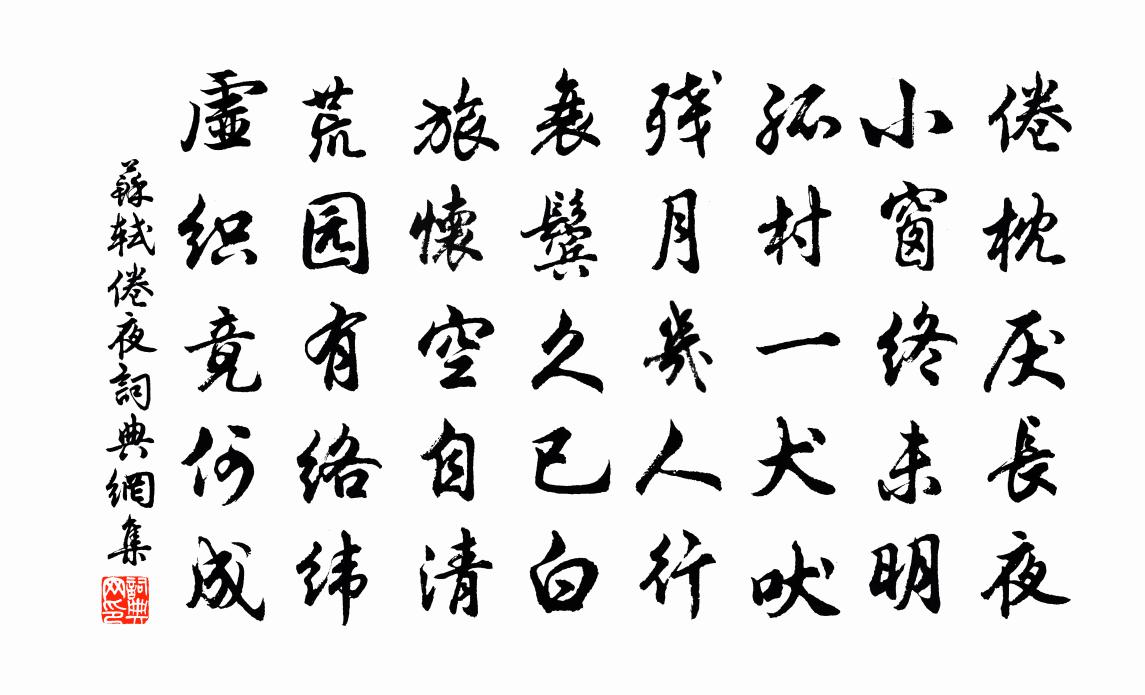 倦枕厌長夜
小窗终未明
孤村一犬吠
残月幾人行
衰鬓久已白
旅懷空自清
荒园有络纬
虚织竟何成
蘇轼倦夜詞典網集
詞典
网